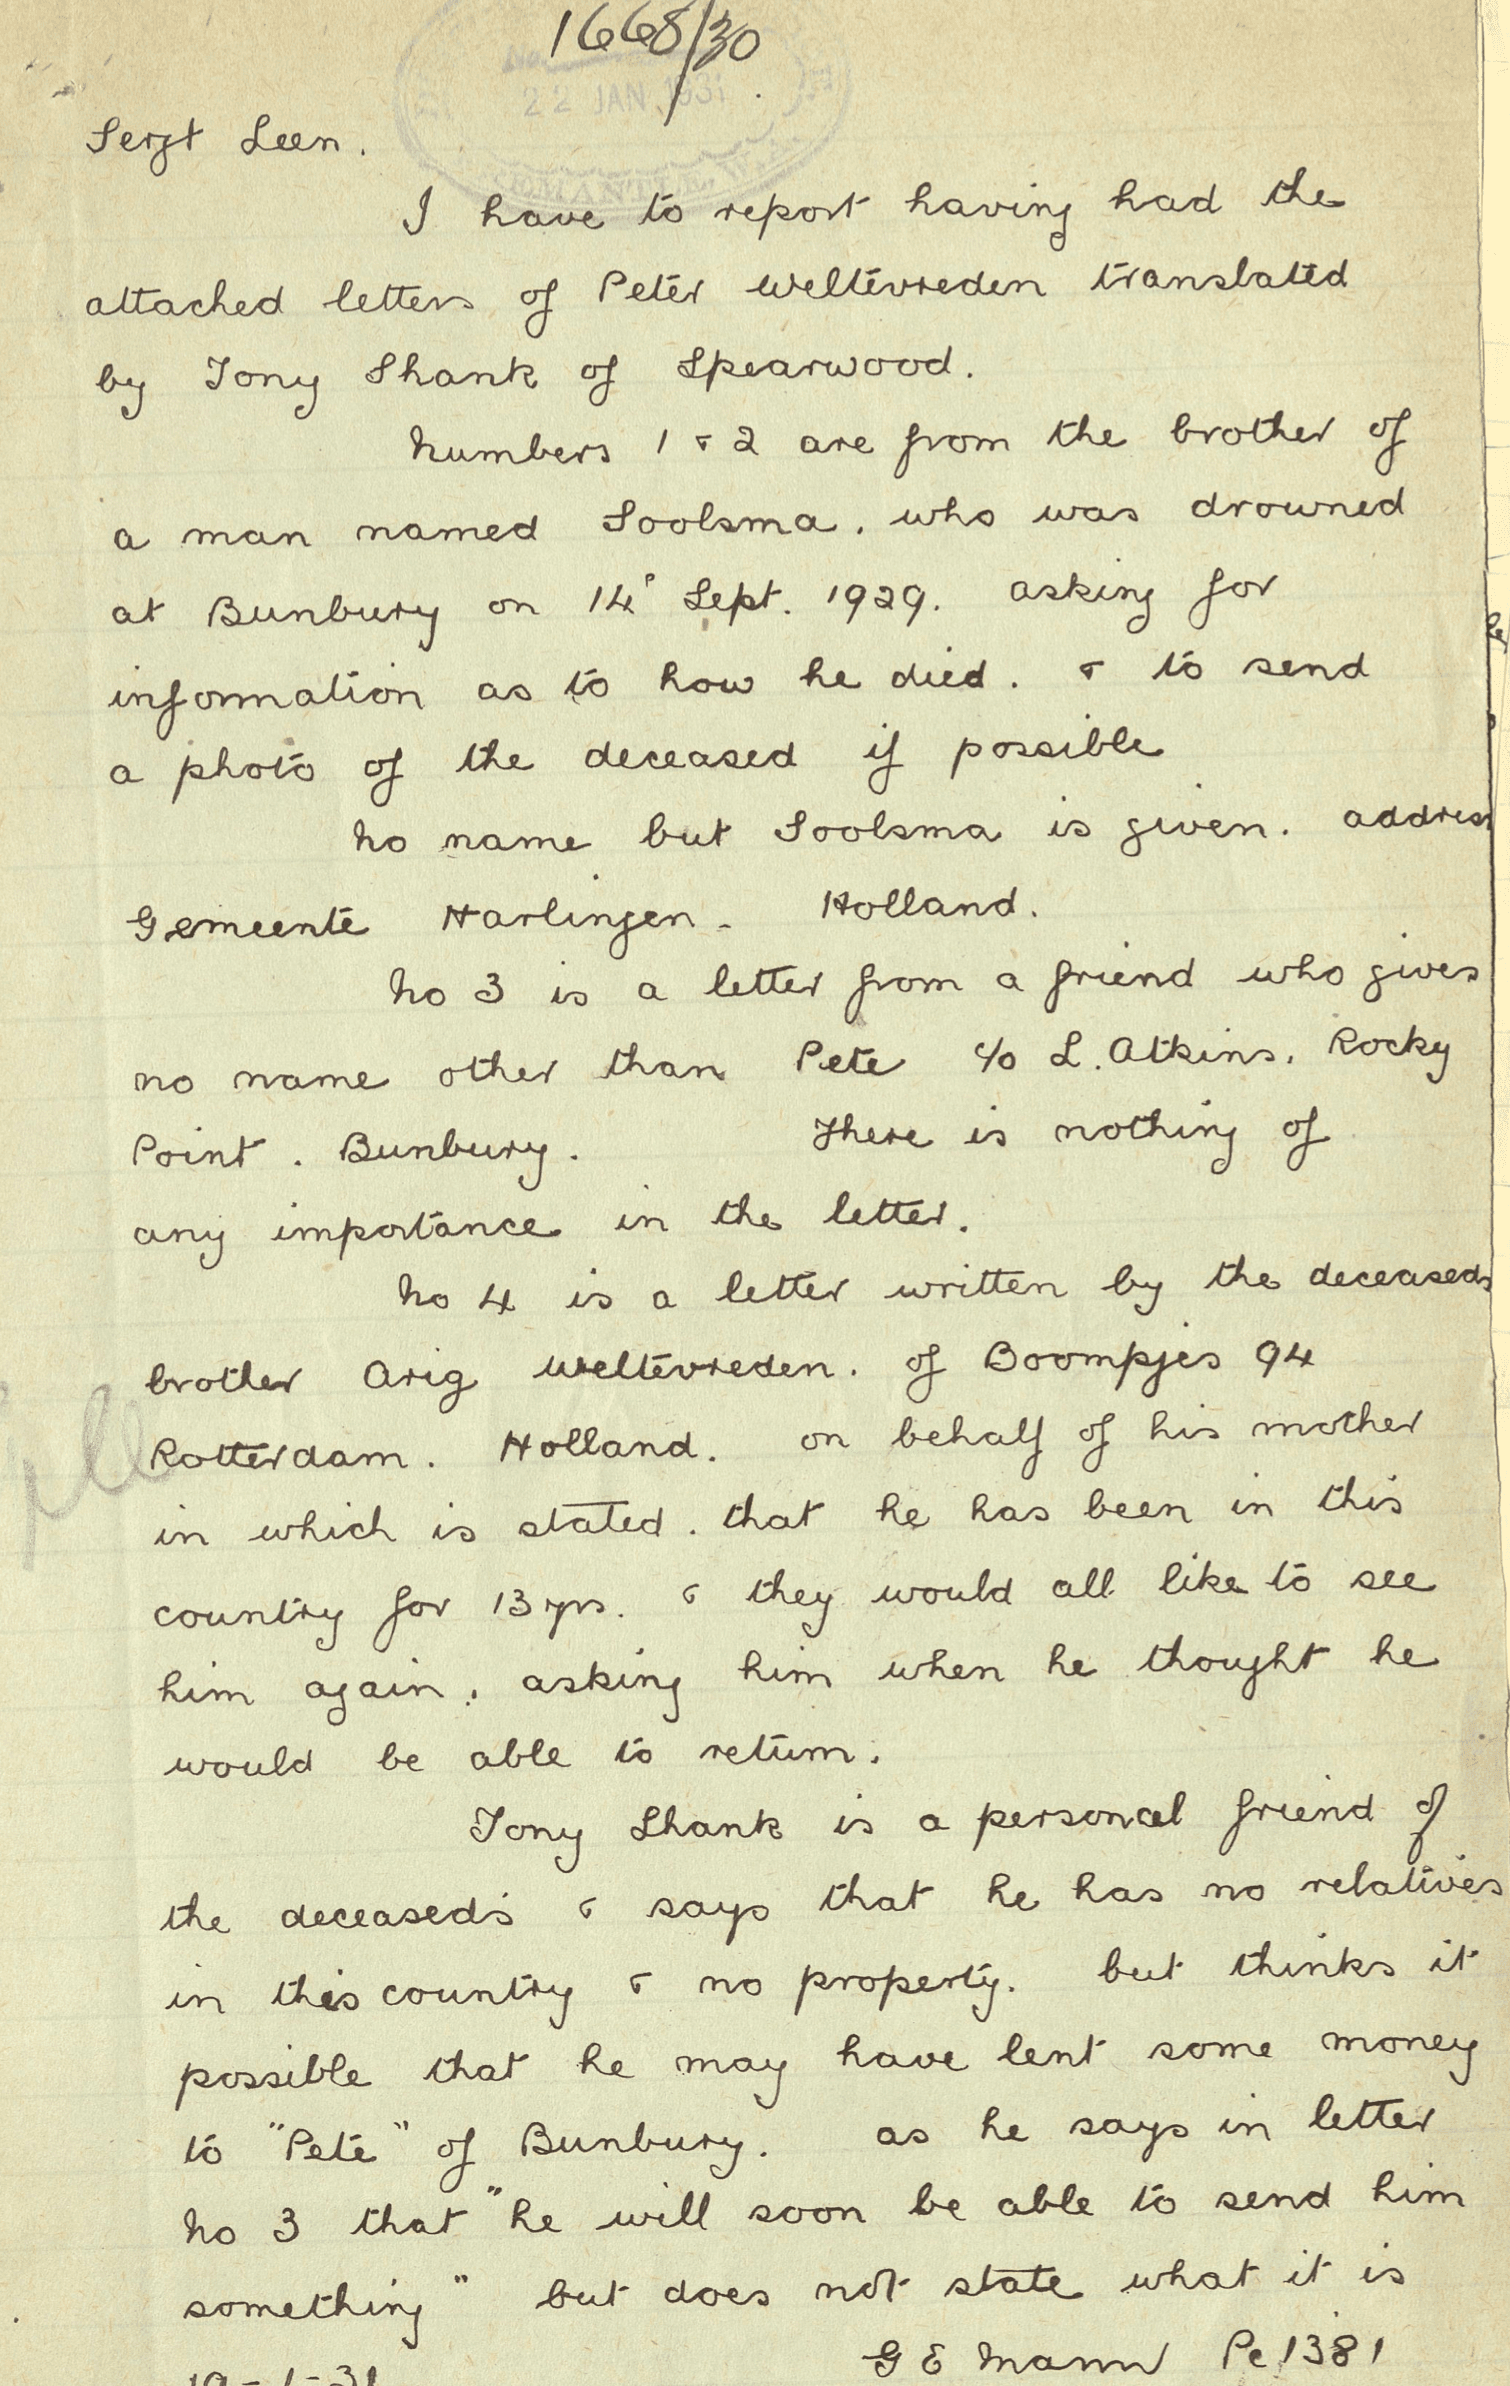 1668/30
22 JAN 1931
Sergt Leen.
I have to report having had the
attached letters of Peter Weltevreden translated
by Tony Shank of Spearwood.
Numbers 1 & 2 are from the brother of
a man named Soolsma. who was drowned
at Bunbury on 14' Sept. 1929. asking for
information as to how he died. & to send
a photo of the deceased if possible
No name but Soolsma is given. address
Gemeente Harlingen. Holland.
No 3 is a letter from a friend who gives
no name other than Pete c/o L. Atkins. Rocky
Point. Bunbury. There is nothing of
any importance in the letter.
No 4 is a letter written by the deceaseds
brother Arig Weltevreden. of Boompjes 94
Rotterdam. Holland. on behalf of his mother
in which is stated. that he has been in this
country for 13 yrs. & they would all like to see
him again, asking him when he thought he
would be able to return.
Tony Shank is a personal friend of
the deceased's & says that he has no relatives
in this country & no property. but thinks it
possible that he may have lent some money
to "Pete" of Bunbury. as he says in letter
No 3 that "he will soon be able to send him
something" but does not state what it is
G E Mann Pc 1381
19-1-31